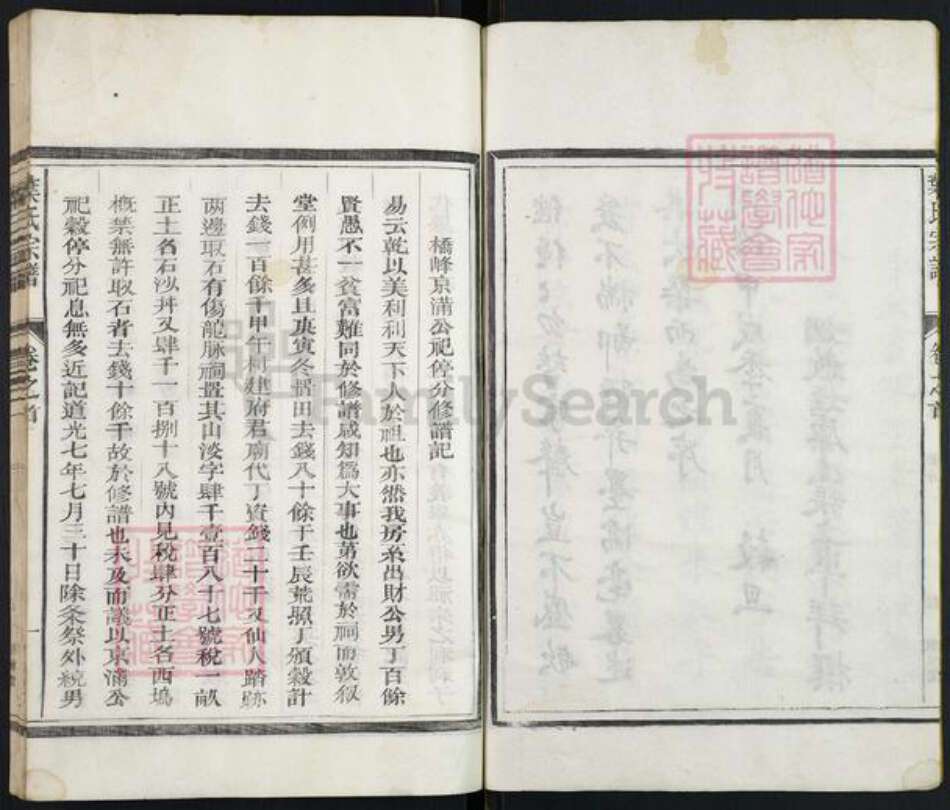 葉氏宗譜
卷之首
橋峰京滿公祀停分修譜記
易云乾以美利利天下人於祖也亦然我房系出財公男丁百餘
賢愚不一貧富難同於修譜咸知為大事也第欲需於祠而敦叙
堂例用甚多且庚寅冬㽞田去錢八十餘千壬辰荒照丁頒穀計
去錢一百餘千甲午柯建府君廟代丁資錢二十千又仙人踏跡
兩邊取石有傷龍脉祠置其山淡字肆千壹百八十七號稅一畝
正土名石沙丼又肆千一百捌十八號內見稅肆分正土名西塢
概禁無許取石者去錢十餘千故於修譜也未及而議以京滿公
祀穀停分祀息無多近記道光七年七月三十日除粢祭外統男
一
葉氏宗譜
卷之首
FamilySearch